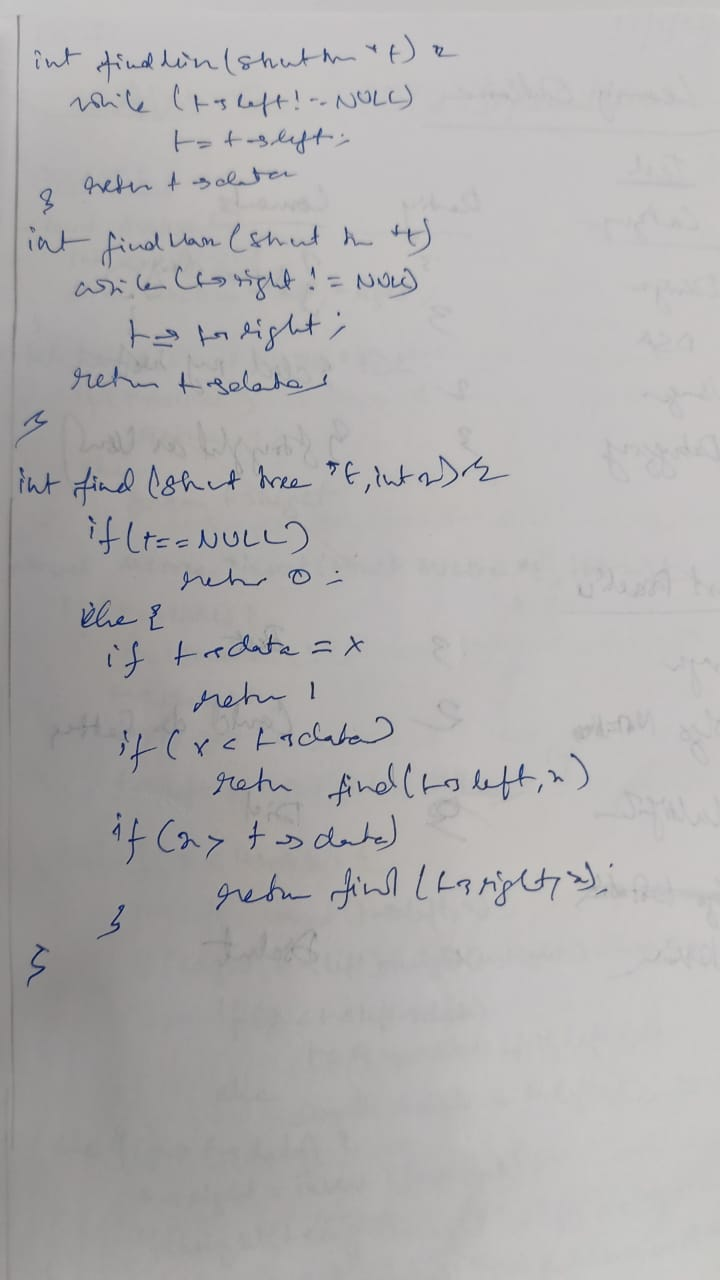 int findMin(struct tree *t) {
while (t->left != NULL)
t = t->left;
return t->data
}
int findMax (struct tree *t)
while (t->right != NULL)
t = t->right;
return t->data;
}
int find (struct tree *t, int x) {
if (t == NULL)
return 0;
else {
if t->data = x
return 1
if (x < t->data)
return find(t->left, x)
if (x > t->data)
return find (t->right, x);
}
}